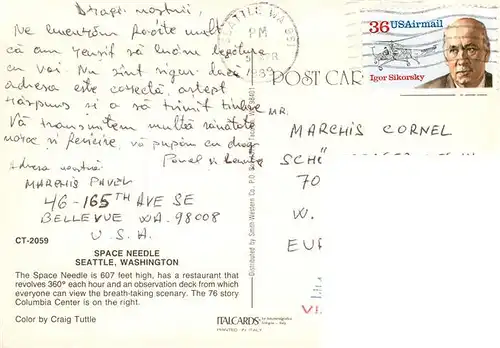 Dragii noștrii,
Ne bucurăm foarte mult
că am reușit să luăm legătura
cu voi. Nu sînt sigur dacă
adresa este corectă, aștept
răspuns și a să trimit
Vă transmitem multă sănătate
noroc și fericire, va pupăm cu drag
Pavel și
Adresa noastră:
MARCHIS PAVEL
46-165TH AVE SE
BELLEVUE WA. 98008
U.S.A.
CT-2059
SPACE NEEDLE
SEATTLE, WASHINGTON
The Space Needle is 607 feet high, has a restaurant that
revolves 360° each hour and an observation deck from which
everyone can view the breath-taking scenary. The 76 story
Columbia Center is on the right.
Color by Craig Tuttle
ITALCARDS
PRINTED IN ITALY
Distributed by Smith-Western Co., P.O.
SEATTLE, WA 981
PM
36 USAirmail
Igor Sikorsky
POST CAR
MR.
MARCHIS CORNEL
SCH
70
W.
EU